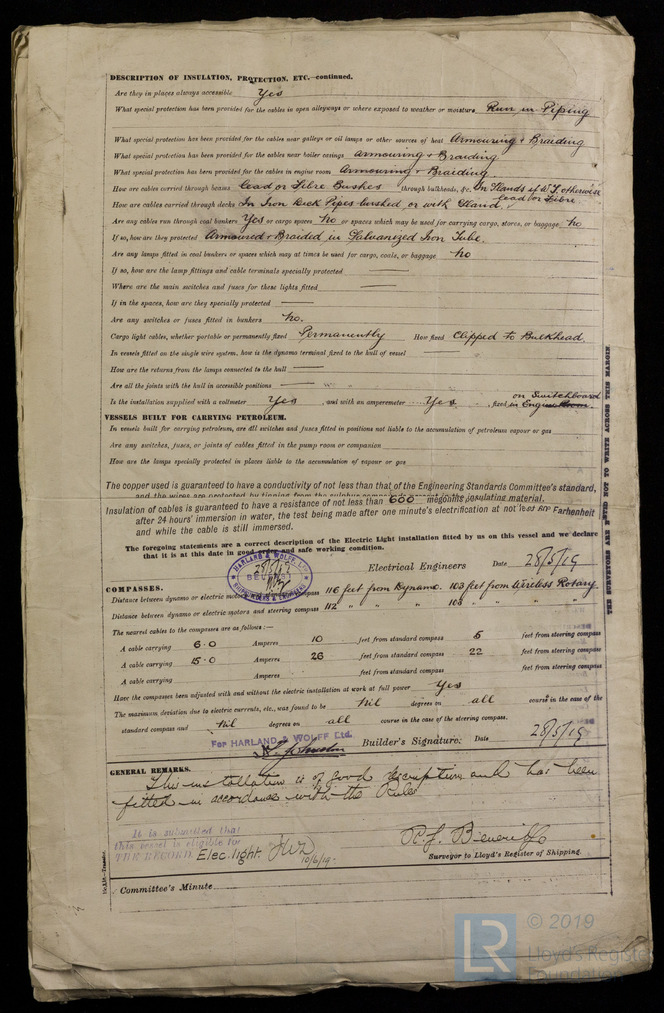 DESCRIPTION OF INSULATION, PROTECTION, ETC.—continued.
Are they in places always accessible Yes
What special protection has been provided for the cables in open alleyways or where exposed to weather or moisture Run in Piping
What special protection has been provided for the cables near galleys or oil lamps or other sources of heat Armouring & Braiding
What special protection has been provided for the cables near boiler casings Armouring & Braiding
What special protection has been provided for the cables in engine room Armouring & Braiding
How are cables carried through beams Lead or Fibre Bushes through bulkheads, &c. In Glands if W.T. otherwise lead or Fibre
How are cables carried through decks In Iron Deck Pipes bushed or with Gland
Are any cables run through coal bunkers Yes or cargo spaces No or spaces which may be used for carrying cargo, stores, or baggage No
If so, how are they protected Armoured & Braided in Galvanized Iron Tube.
Are any lamps fitted in coal bunkers or spaces which may at times be used for cargo, coals, or baggage No
If so, how are the lamp fittings and cable terminals specially protected
Where are the main switches and fuses for these lights fitted
If in the spaces, how are they specially protected
Are any switches or fuses fitted in bunkers No.
Cargo light cables, whether portable or permanently fixed Permanently How fixed Clipped to Bulkhead
In vessels fitted on the single wire system, how is the dynamo terminal fixed to the hull of vessel
How are the returns from the lamps connected to the hull
Are all the joints with the hull in accessible positions
Is the installation supplied with a voltmeter Yes, and with an amperemeter Yes, fixed on Switchboard in Engine Room.
VESSELS BUILT FOR CARRYING PETROLEUM.
In vessels built for carrying petroleum, are all switches and fuses fitted in positions not liable to the accumulation of petroleum vapour or gas
Are any switches, fuses, or joints of cables fitted in the pump room or companion
How are the lamps specially protected in places liable to the accumulation of vapour or gas
The copper used is guaranteed to have a conductivity of not less than that of the Engineering Standards Committee's standard,
and the wires are protected by tinning from the sulphur compounds present in the insulating material.
Insulation of cables is guaranteed to have a resistance of not less than 600 megohms
after 24 hours' immersion in water, the test being made after one minute's electrification at not less Farhenheit
and while the cable is still immersed.
The foregoing statements are a correct description of the Electric Light installation fitted by us on this vessel and we declare
that it is at this date in good order and safe working condition.
HARLAND & WOLFF, LTD.
BELFAST
28/5/19
Electrical Engineers Date 28/5/19
COMPASSES.
Distance between dynamo or electric motors and standard compass 116 feet from Dynamo. 103 feet from Wireless Rotary
Distance between dynamo or electric motors and steering compass 112 " " " 100 " " "
The nearest cables to the compasses are as follows:—
A cable carrying 6.0 Amperes 10 feet from standard compass 6 feet from steering compass
A cable carrying 15.0 Amperes 26 feet from standard compass 22 feet from steering compass
A cable carrying Amperes feet from standard compass feet from steering compass
Have the compasses been adjusted with and without the electric installation at work at full power Yes
The maximum deviation due to electric currents, etc., was found to be Nil degrees on all course in the case of the
standard compass and Nil degrees on all course in the case of the steering compass.
For HARLAND & WOLFF Ltd.
Builder's Signature. Date 28/5/19
GENERAL REMARKS.
This installation is of good description and has been
fitted in accordance with the Rules
It is submitted that
this vessel is eligible for
THE RECORD. Elec. light. 10/6/19.
Surveyor to Lloyd's Register of Shipping.
Committee's Minute
THE SURVEYORS ARE NOT TO WRITE ACROSS THIS MARGIN
LR
© 2019
Lloyd's Register
Foundation